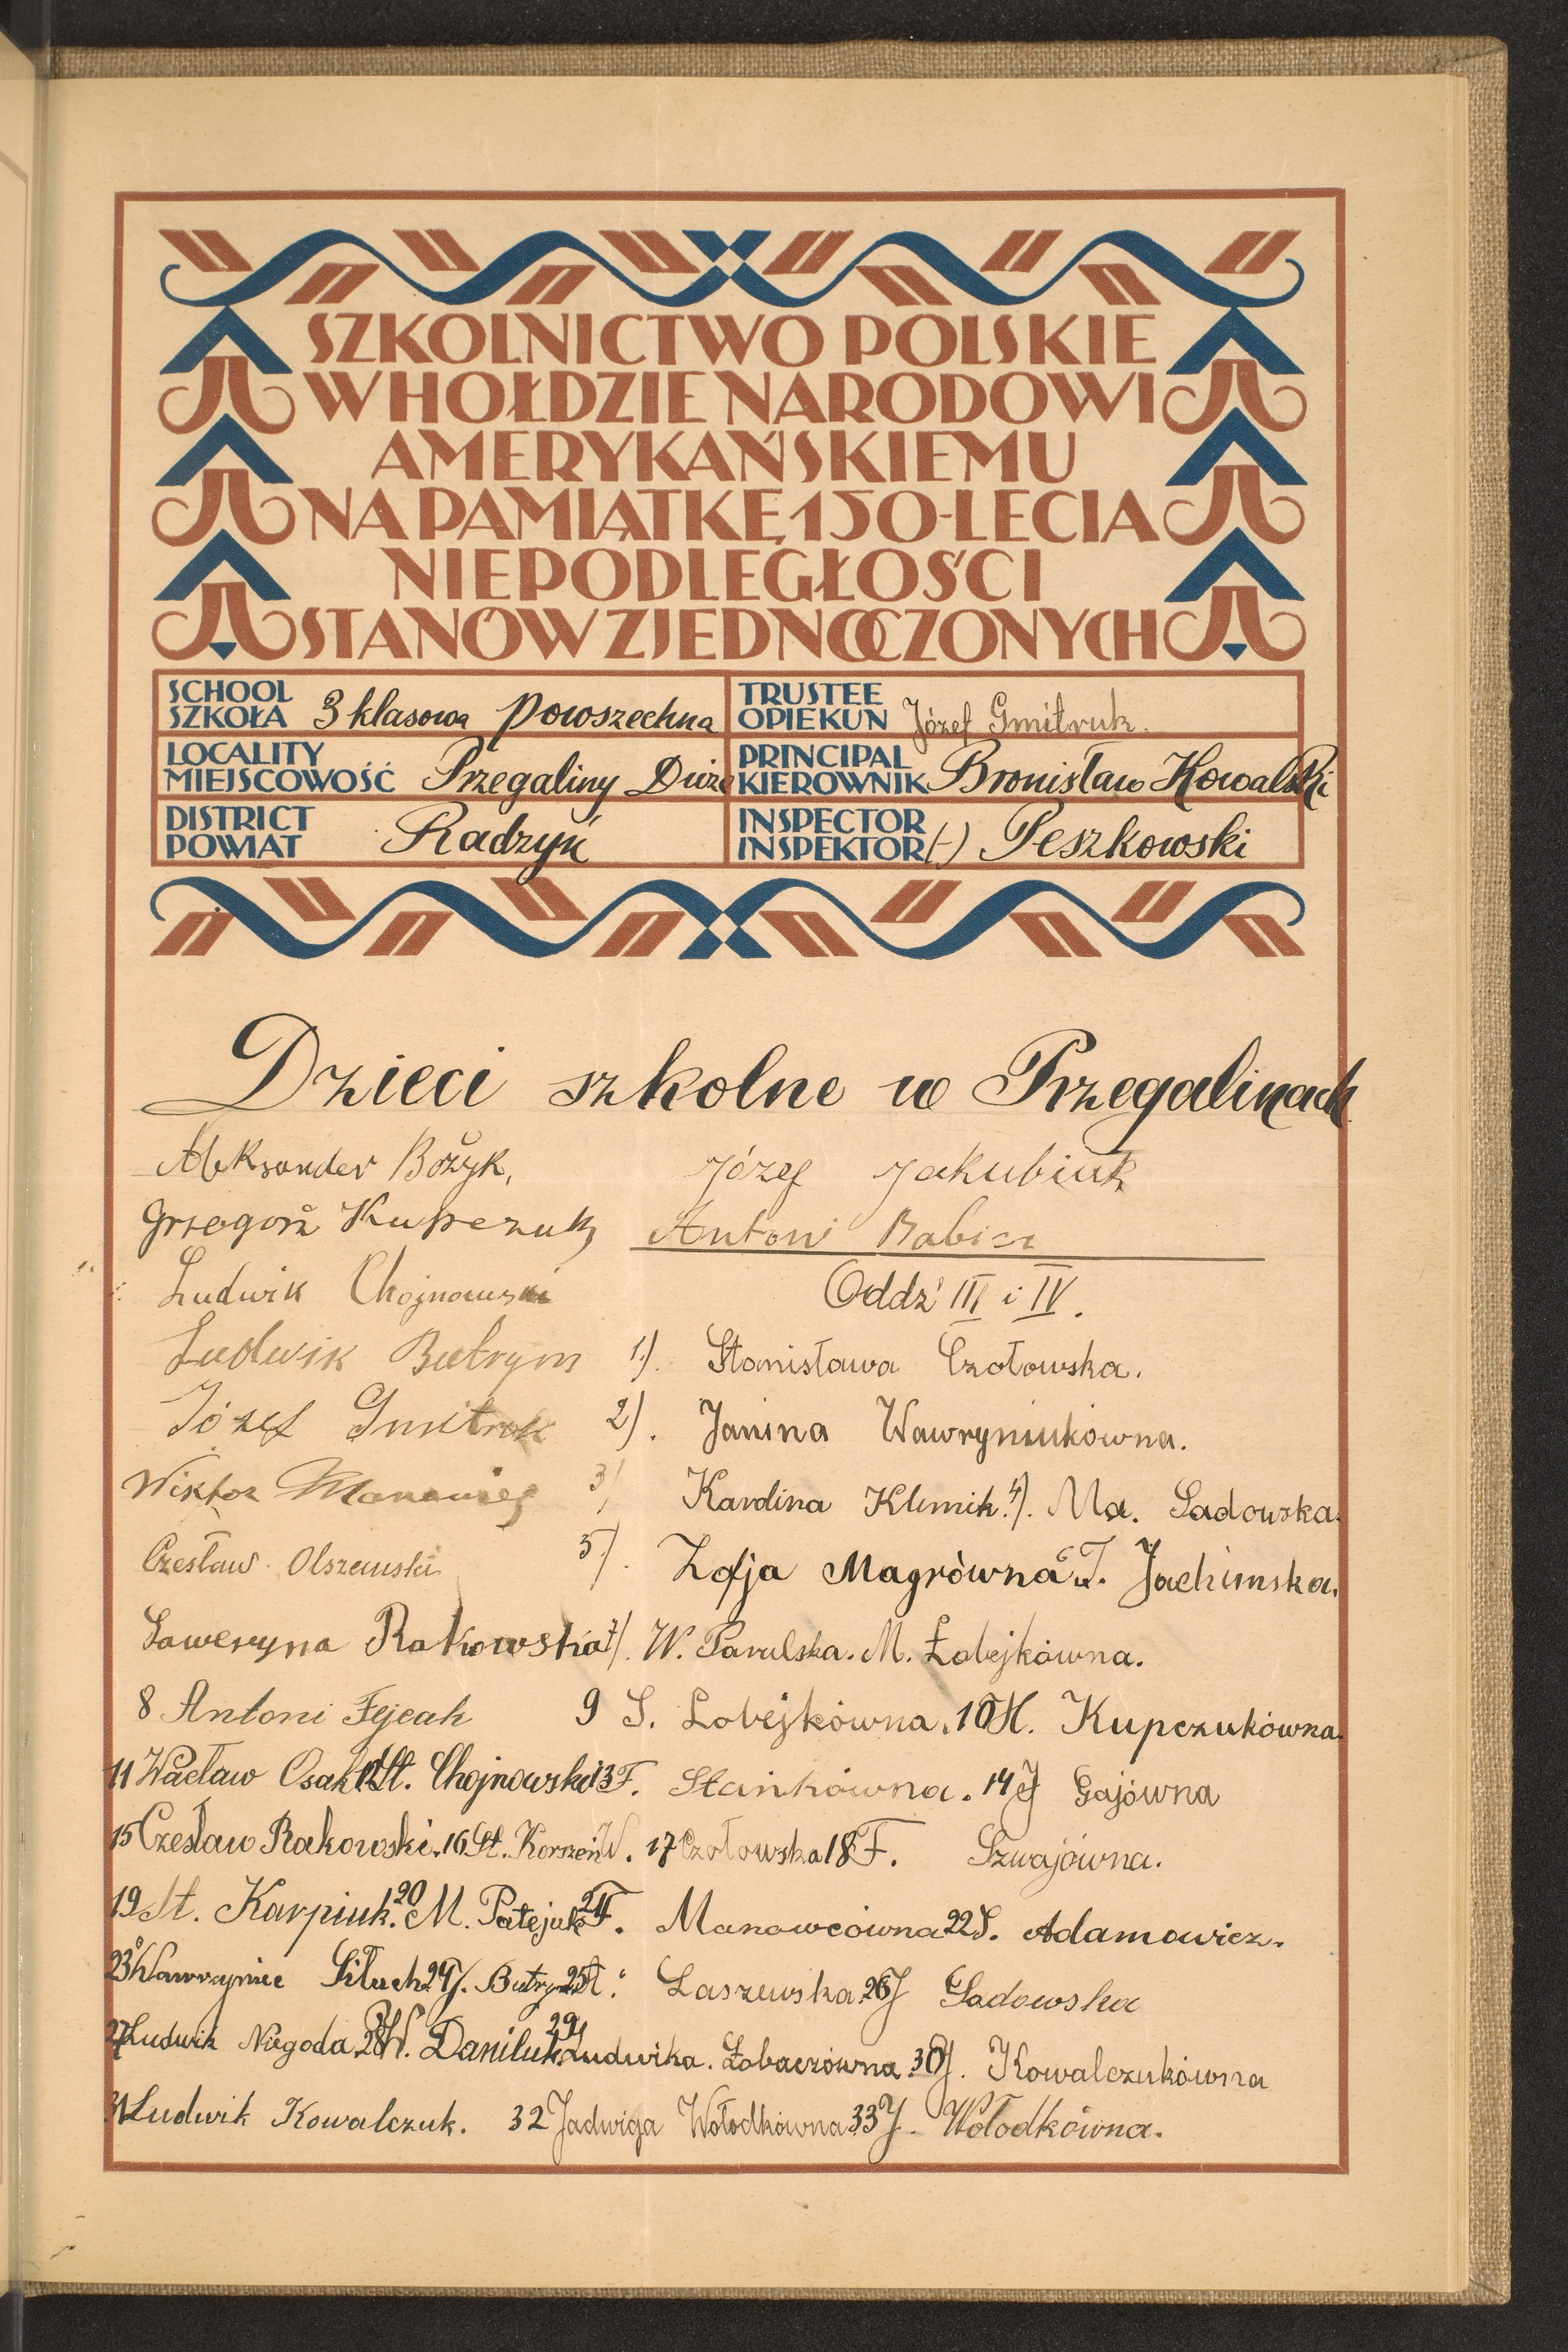 SZKOLNICTWO POLSKIE
W HOŁDZIE NARODOWI
AMERYKAŃSKIEMU
NA PAMIĄTKĘ 150-LECIA
NIEPODLEGŁOŚCI
STANÓW ZJEDNOCZONYCH
SCHOOL
SZKOŁA 3 klasowa Powszechna
TRUSTEE
OPIEKUN Józef Gmitruk.
LOCALITY
MIEJSCOWOŚĆ Przegaliny Duże
PRINCIPAL
KIEROWNIK Bronisław Kowalski
DISTRICT
POWIAT Radzyń
INSPECTOR
INSPEKTOR (-) Peszkowski
Dzieci szkolne w Przegalinach
Aleksander Bożyk, Józef Jakubiuk
Grzegorz Kupczuk Antoni Babicz
Ludwik Chojnowski Oddź III i IV.
Ludwik Butrym 1). Stanisława Czołowska.
Józef Gmitruk 2). Janina Wawryniukówna.
Wiktor 3) Karolina Klimik. 4). Ma. Sadowska.
Czesław Olszewski 5). Zofja Magrówna 6 J. Jachimska.
Saweryna Rakowska 7). W. Parulska. M. Łobejkówna.
8 Antoni 9 S. Łobejkówna. 10 H. Kupczukówna.
11 Wacław Osak 12 St. Chojnowski 13 F. Stańkówna. 14 J Gajówna
15 Czesław Rakowski. 16 St. Korszeń W. 17 Czołowska 18 F. Szwajówna.
19 St. Karpiuk. 20 M. Patejuk 21 F. Manowcówna 22 S. Adamowicz.
23 Wawrzyniec 24 J. Butrym 25 A. Laszewska. 26 J Sadowska
27 Ludwik Niegoda. 28 W. Daniluk. 29 Ludwika. Łobaczówna. 30 J. Kowalczukówna
31 Ludwik Kowalczuk. 32 Jadwiga Wołodkówna 33 J. Wołodkówna.